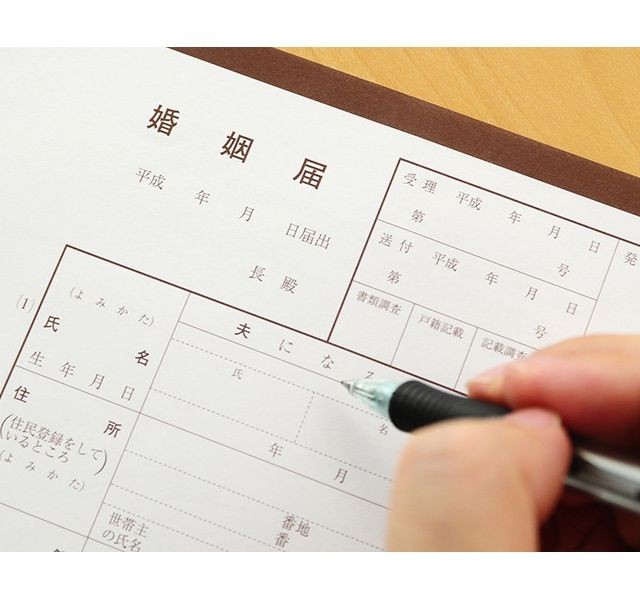 婚姻届
平成 年 月 日届出
長 殿
受理 平成 年 月 日
第 号
送付 平成 年 月 日
第 号
書類調査 戸籍記載 記載調査
発
(1)
(よみかた)
氏名
生年月日
夫になる
氏 名
年 月
住所
(住民登録をして
いるところ)
(よみかた)
番地
番
世帯主
の氏名